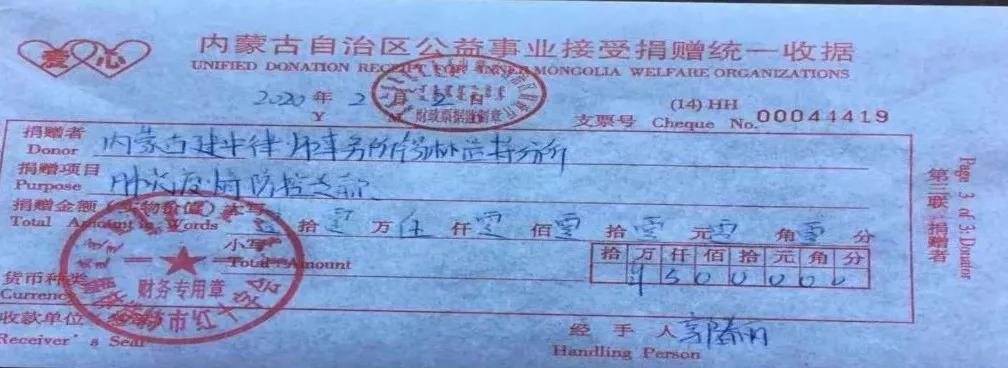 爱心
内蒙古自治区公益事业接受捐赠统一收据
UNIFIED DONATION RECEIPT FOR INNER MONGOLIA WELFARE ORGANIZATIONS
2020 年 2 月 日
Y
(14) HH
支票号 Cheque No. 00041419
财政票据监制章
捐赠者
Donor
内蒙古建中律师事务所锡林浩特分所
捐赠项目
Purpose
肺炎疫情防控善款
捐赠金额(实物价值)大写:
Total Amount in Words
拾 零 万 伍 仟 零 佰 零 拾 零 元 零 角 零 分
小写
Total Amount
拾 万 仟 佰 拾 元 角 分
¥ 5 0 0 0 0 0
货币种类
Currency
财务专用章
市红十字会
收款单位
Receiver's Seal
经手人
Handling Person
第三联:捐赠者
Page 3 of 3: Donator